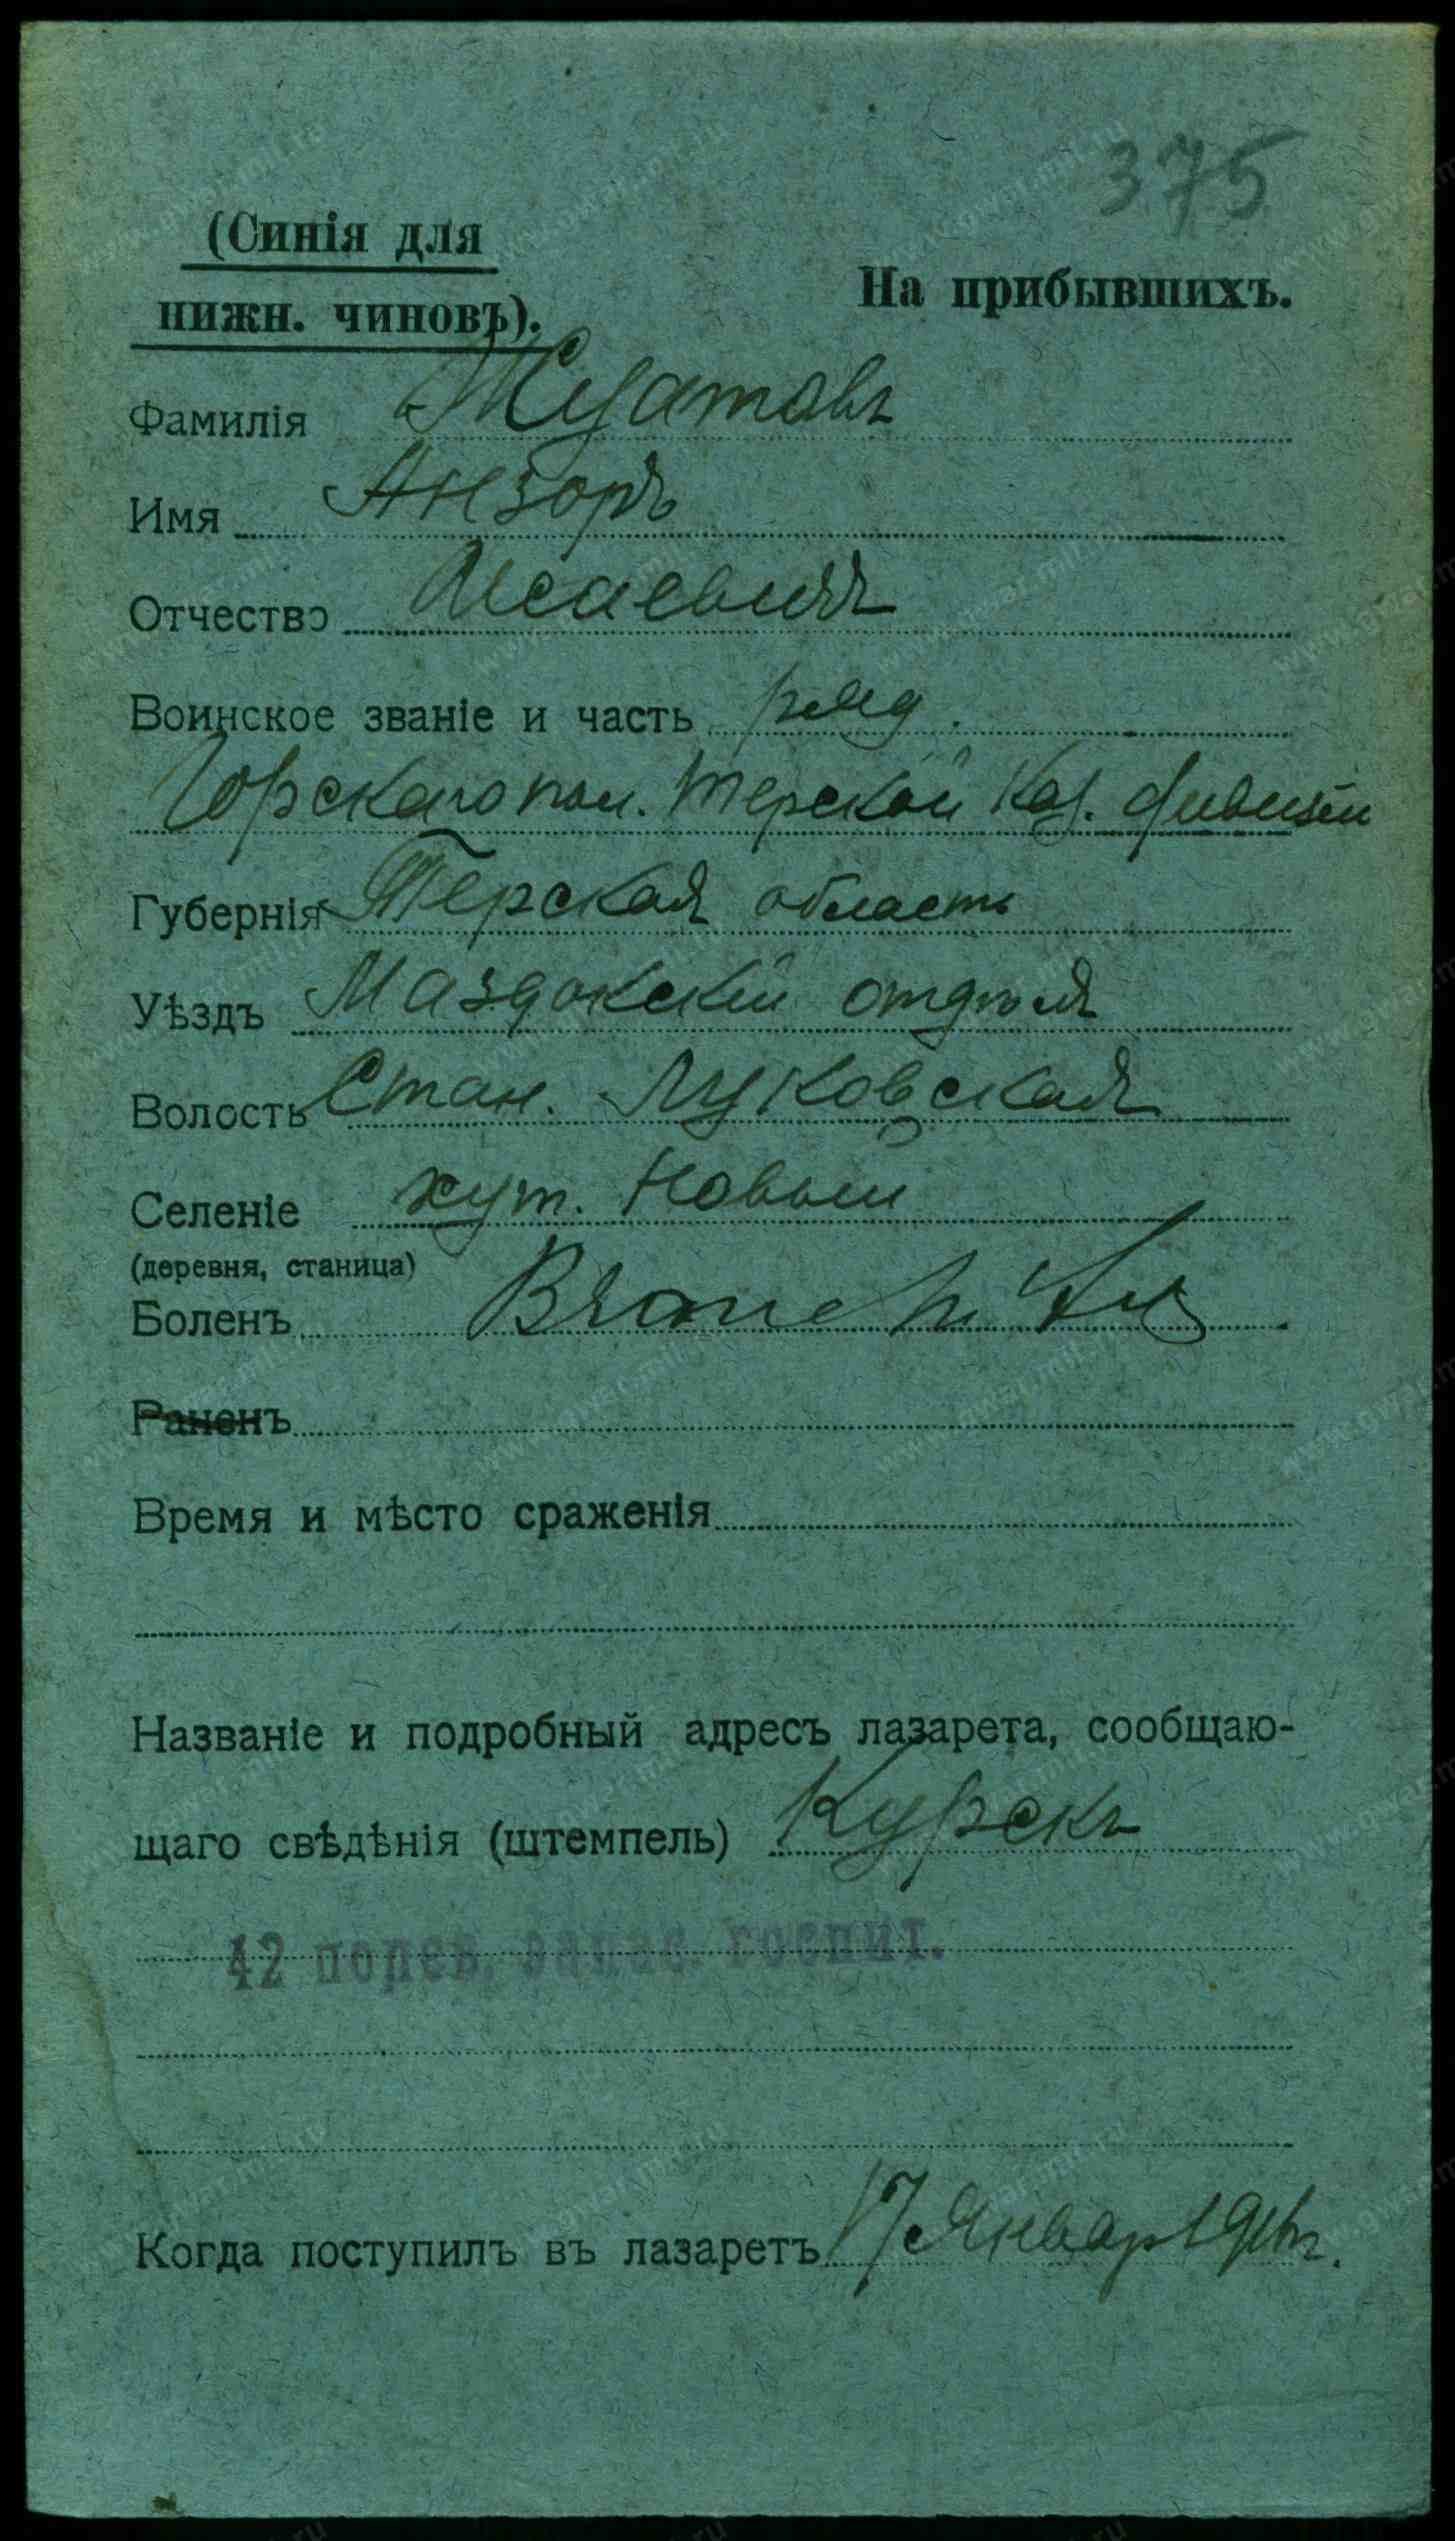 375
(Синія для
нижн. чиновъ).
На прибывшихъ.
Фамилія Жуатовъ
Имя Анзоръ
Отчество Исаевичъ
Воинское званіе и часть ряд.
Горскаго пол. Терской Каз. дивизіи
Губернія Терская область
Уѣздъ Маздокскій отдѣлъ
Волость Стан. Луковская
Селеніе хут. Новый
(деревня, станица)
Боленъ
Раненъ
Время и мѣсто сраженія
Названіе и подробный адресъ лазарета, сообщаю-
щаго свѣдѣнія (штемпель) Курскъ
42 полев. запас. госпит.
Когда поступилъ въ лазаретъ 17 Январ